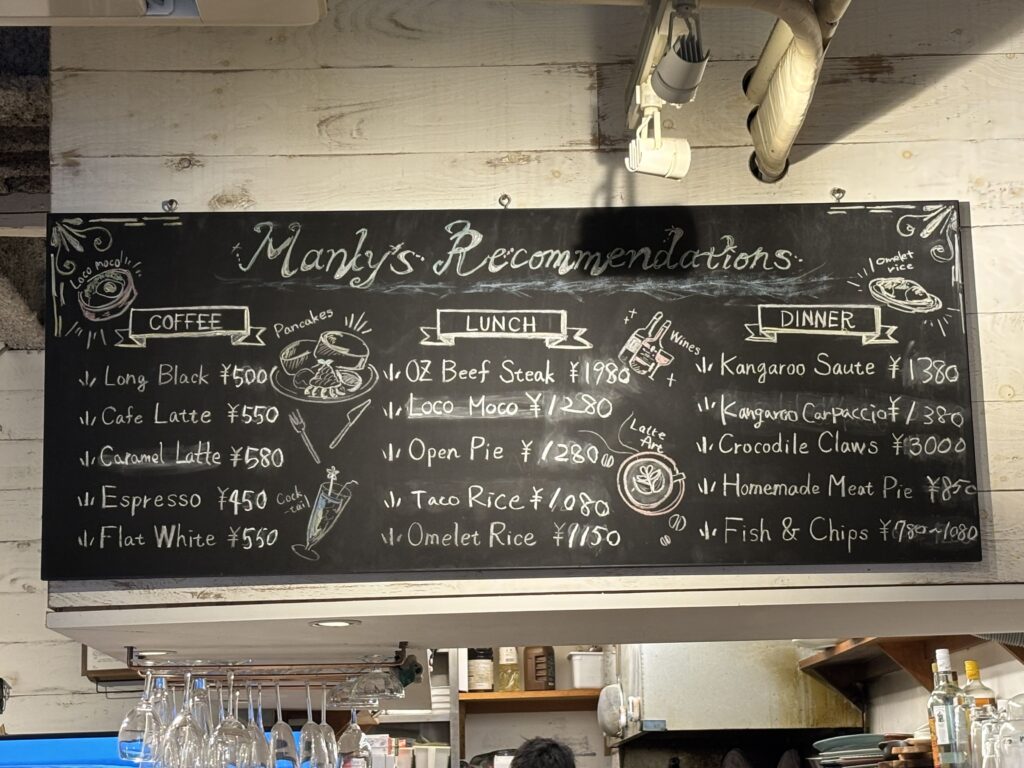 Manly's Recommendations
Loco moco
Omelet
rice
COFFEE
Long Black ¥500
Cafe Latte ¥550
Caramel Latte ¥580
Espresso ¥450
Flat White ¥550
Pancakes
Cock
-tail
LUNCH
OZ Beef Steak ¥1980
Loco Moco ¥1280
Open Pie ¥1280
Taco Rice ¥1080
Omelet Rice ¥1150
Wines
Latte
Art
DINNER
Kangaroo Saute ¥1380
Kangaroo Carpaccio ¥1380
Crocodile Claws ¥3000
Homemade Meat Pie ¥850
Fish & Chips ¥780~1080